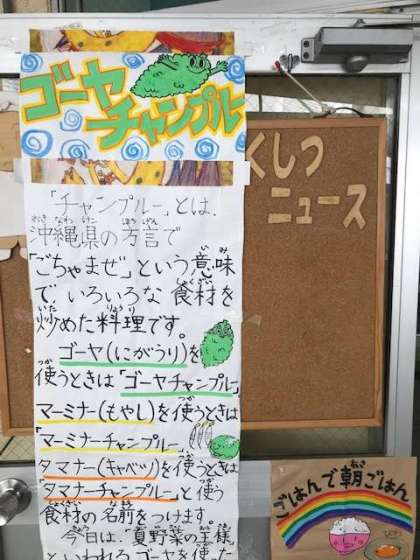 ゴーヤ
チャンプルー
「チャンプルー」とは、
沖縄県の方言で
「ごちゃまぜ」という意味
で、いろいろな食材を
炒めた料理です。
ゴーヤ(にがうり)を
使うときは「ゴーヤチャンプルー」
マーミナー(もやし)を使うときは
「マーミナーチャンプルー」
タマナー(キャベツ)を使うときは
「タマナーチャンプルー」と使う
食材の名前をつけます。
今日は、夏野菜の王様
といわれるゴーヤを使った
くしつ
ニュース
ごはんで朝ごはん